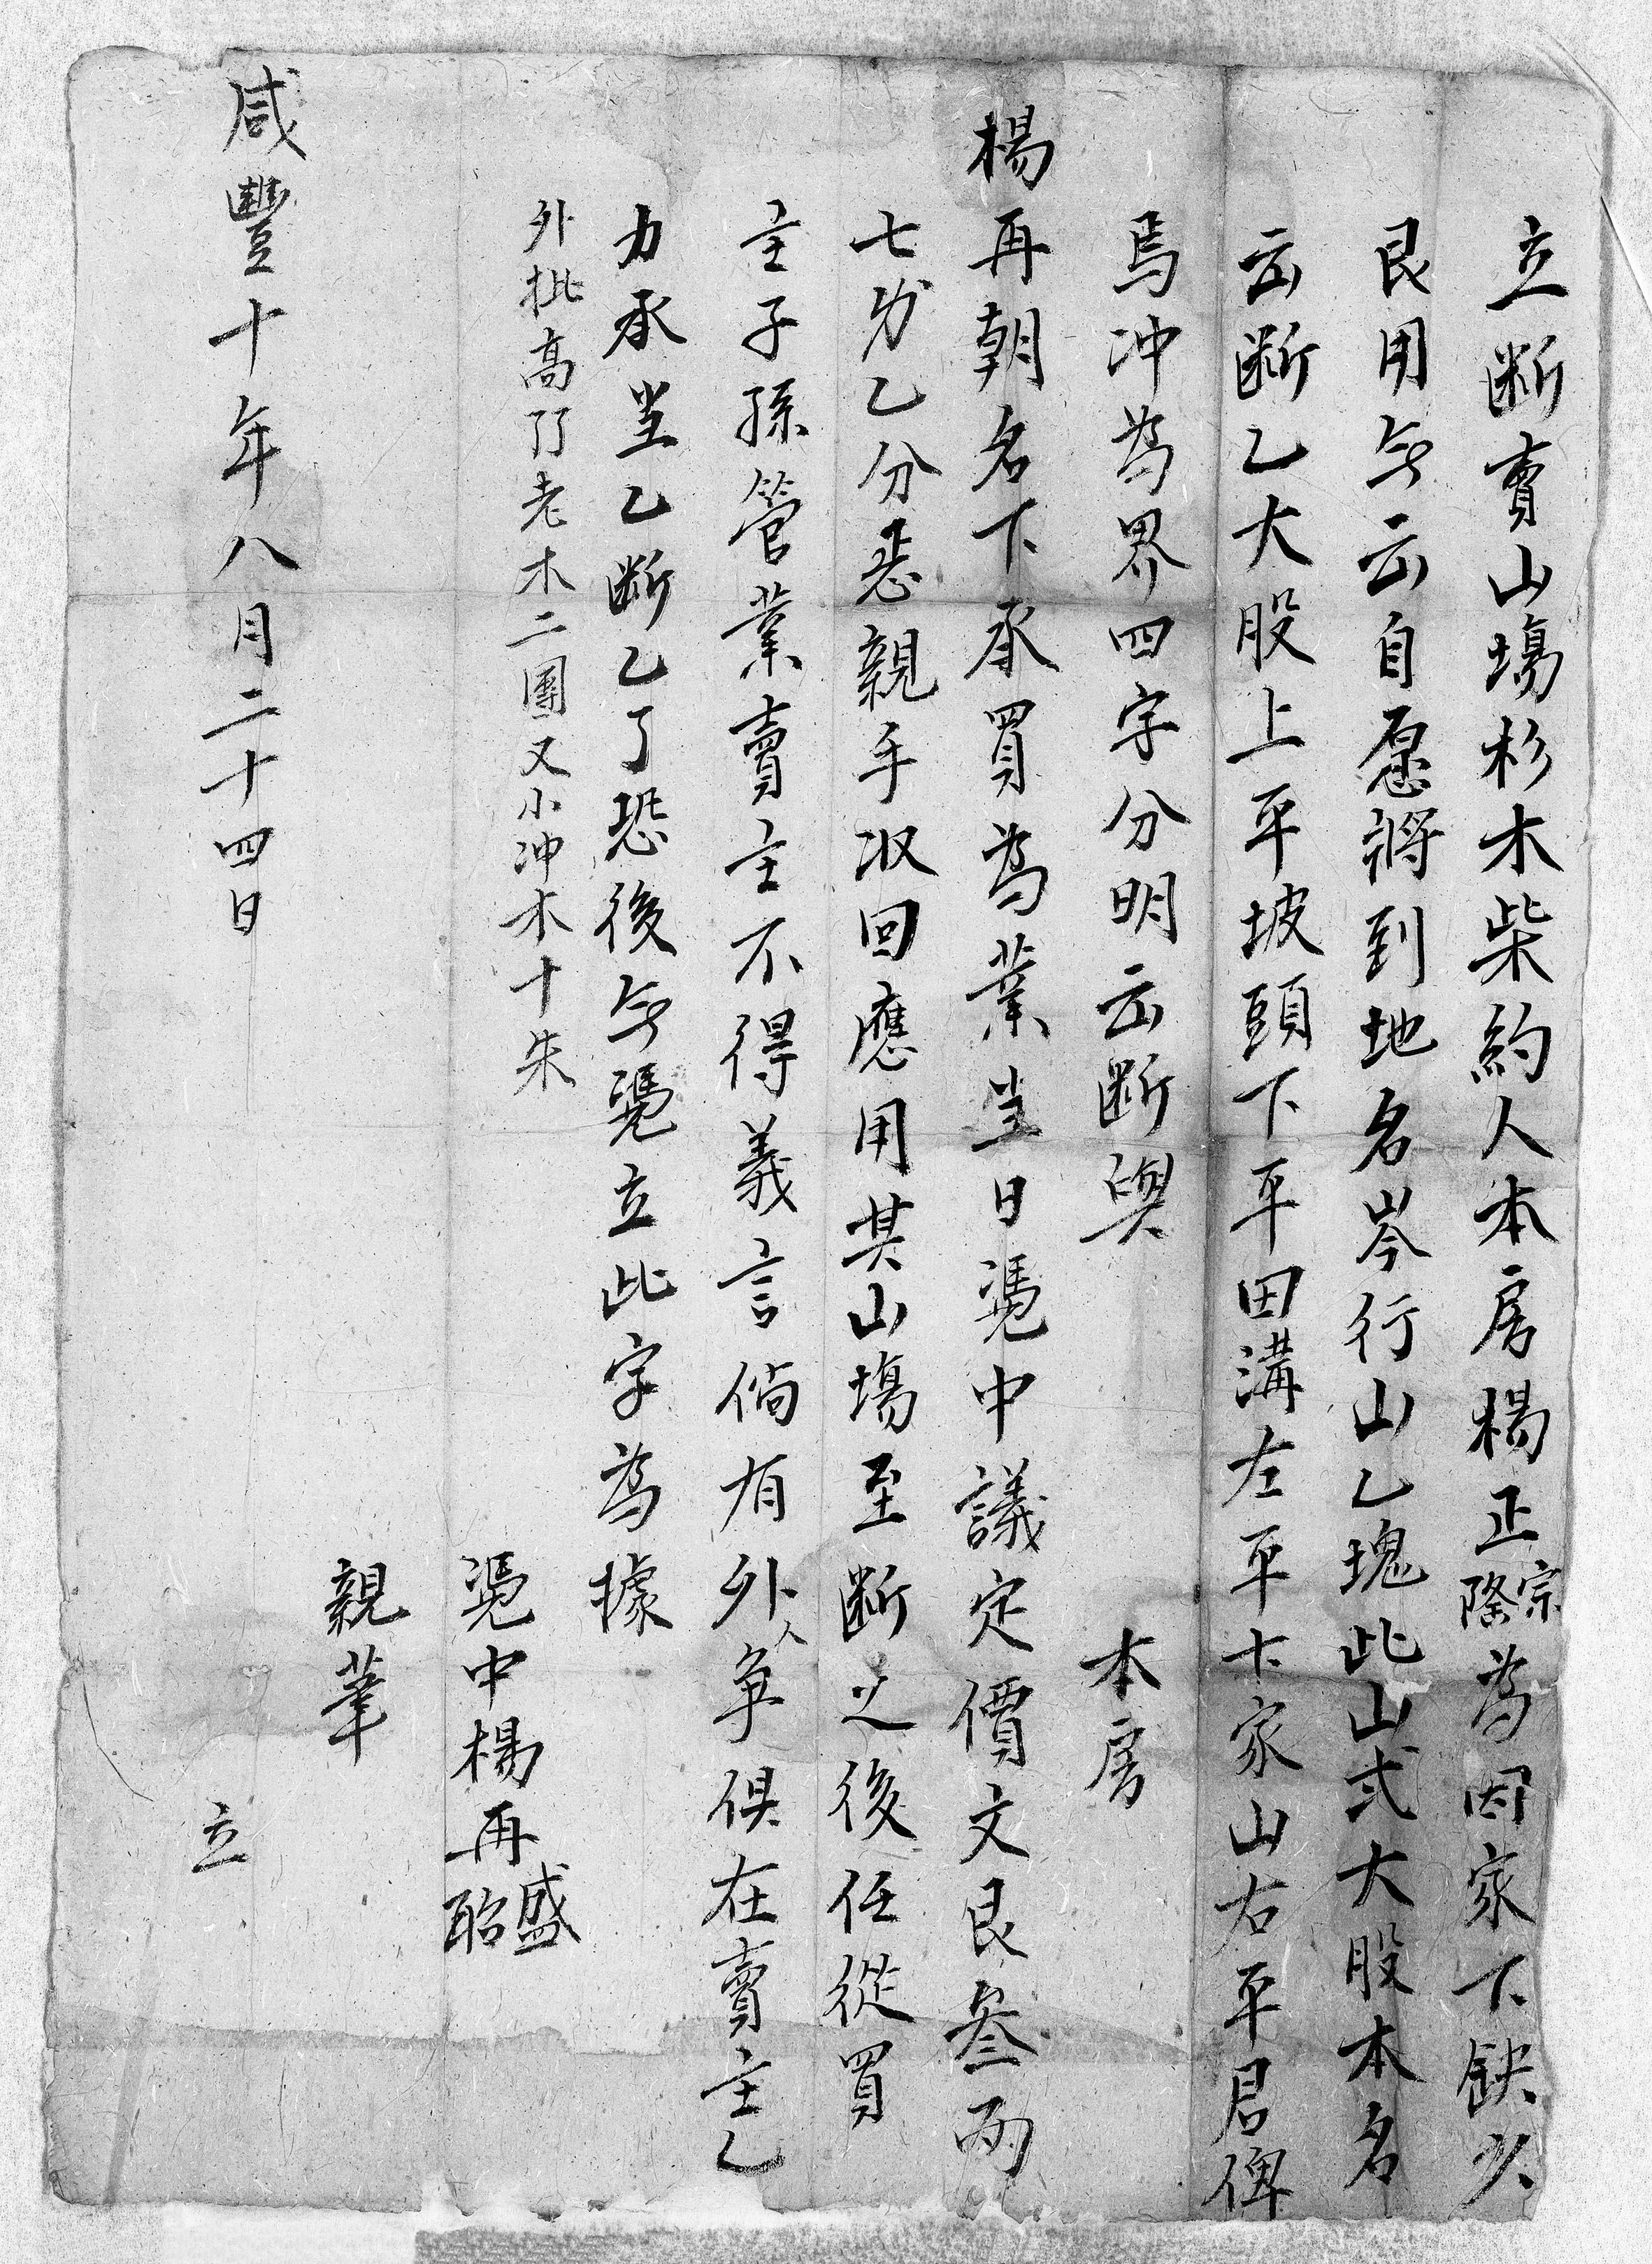 立断賣山塲杉木柴約人本房楊正宗隆為因家下缺少
艮用無云自愿將到地名岑行山乙塊此山弍大股本名
云断乙大股上平坡頭下平田溝左平卡家山右平君俾
焉冲為界四字分明云断與　本房
楊再朝名下承買為業当日凴中議定價文艮叁両
七分乙分悉親手収回應用其山塲至断之後任從買
主子孫管業賣主不得義言倘有外人争俱在賣主乙
力承当乙断乙了恐後無凴立此字為據
外批高了老木二團又小冲木十朱
凴中楊再盛聆
親筆
咸豐十年八月二十四日　立